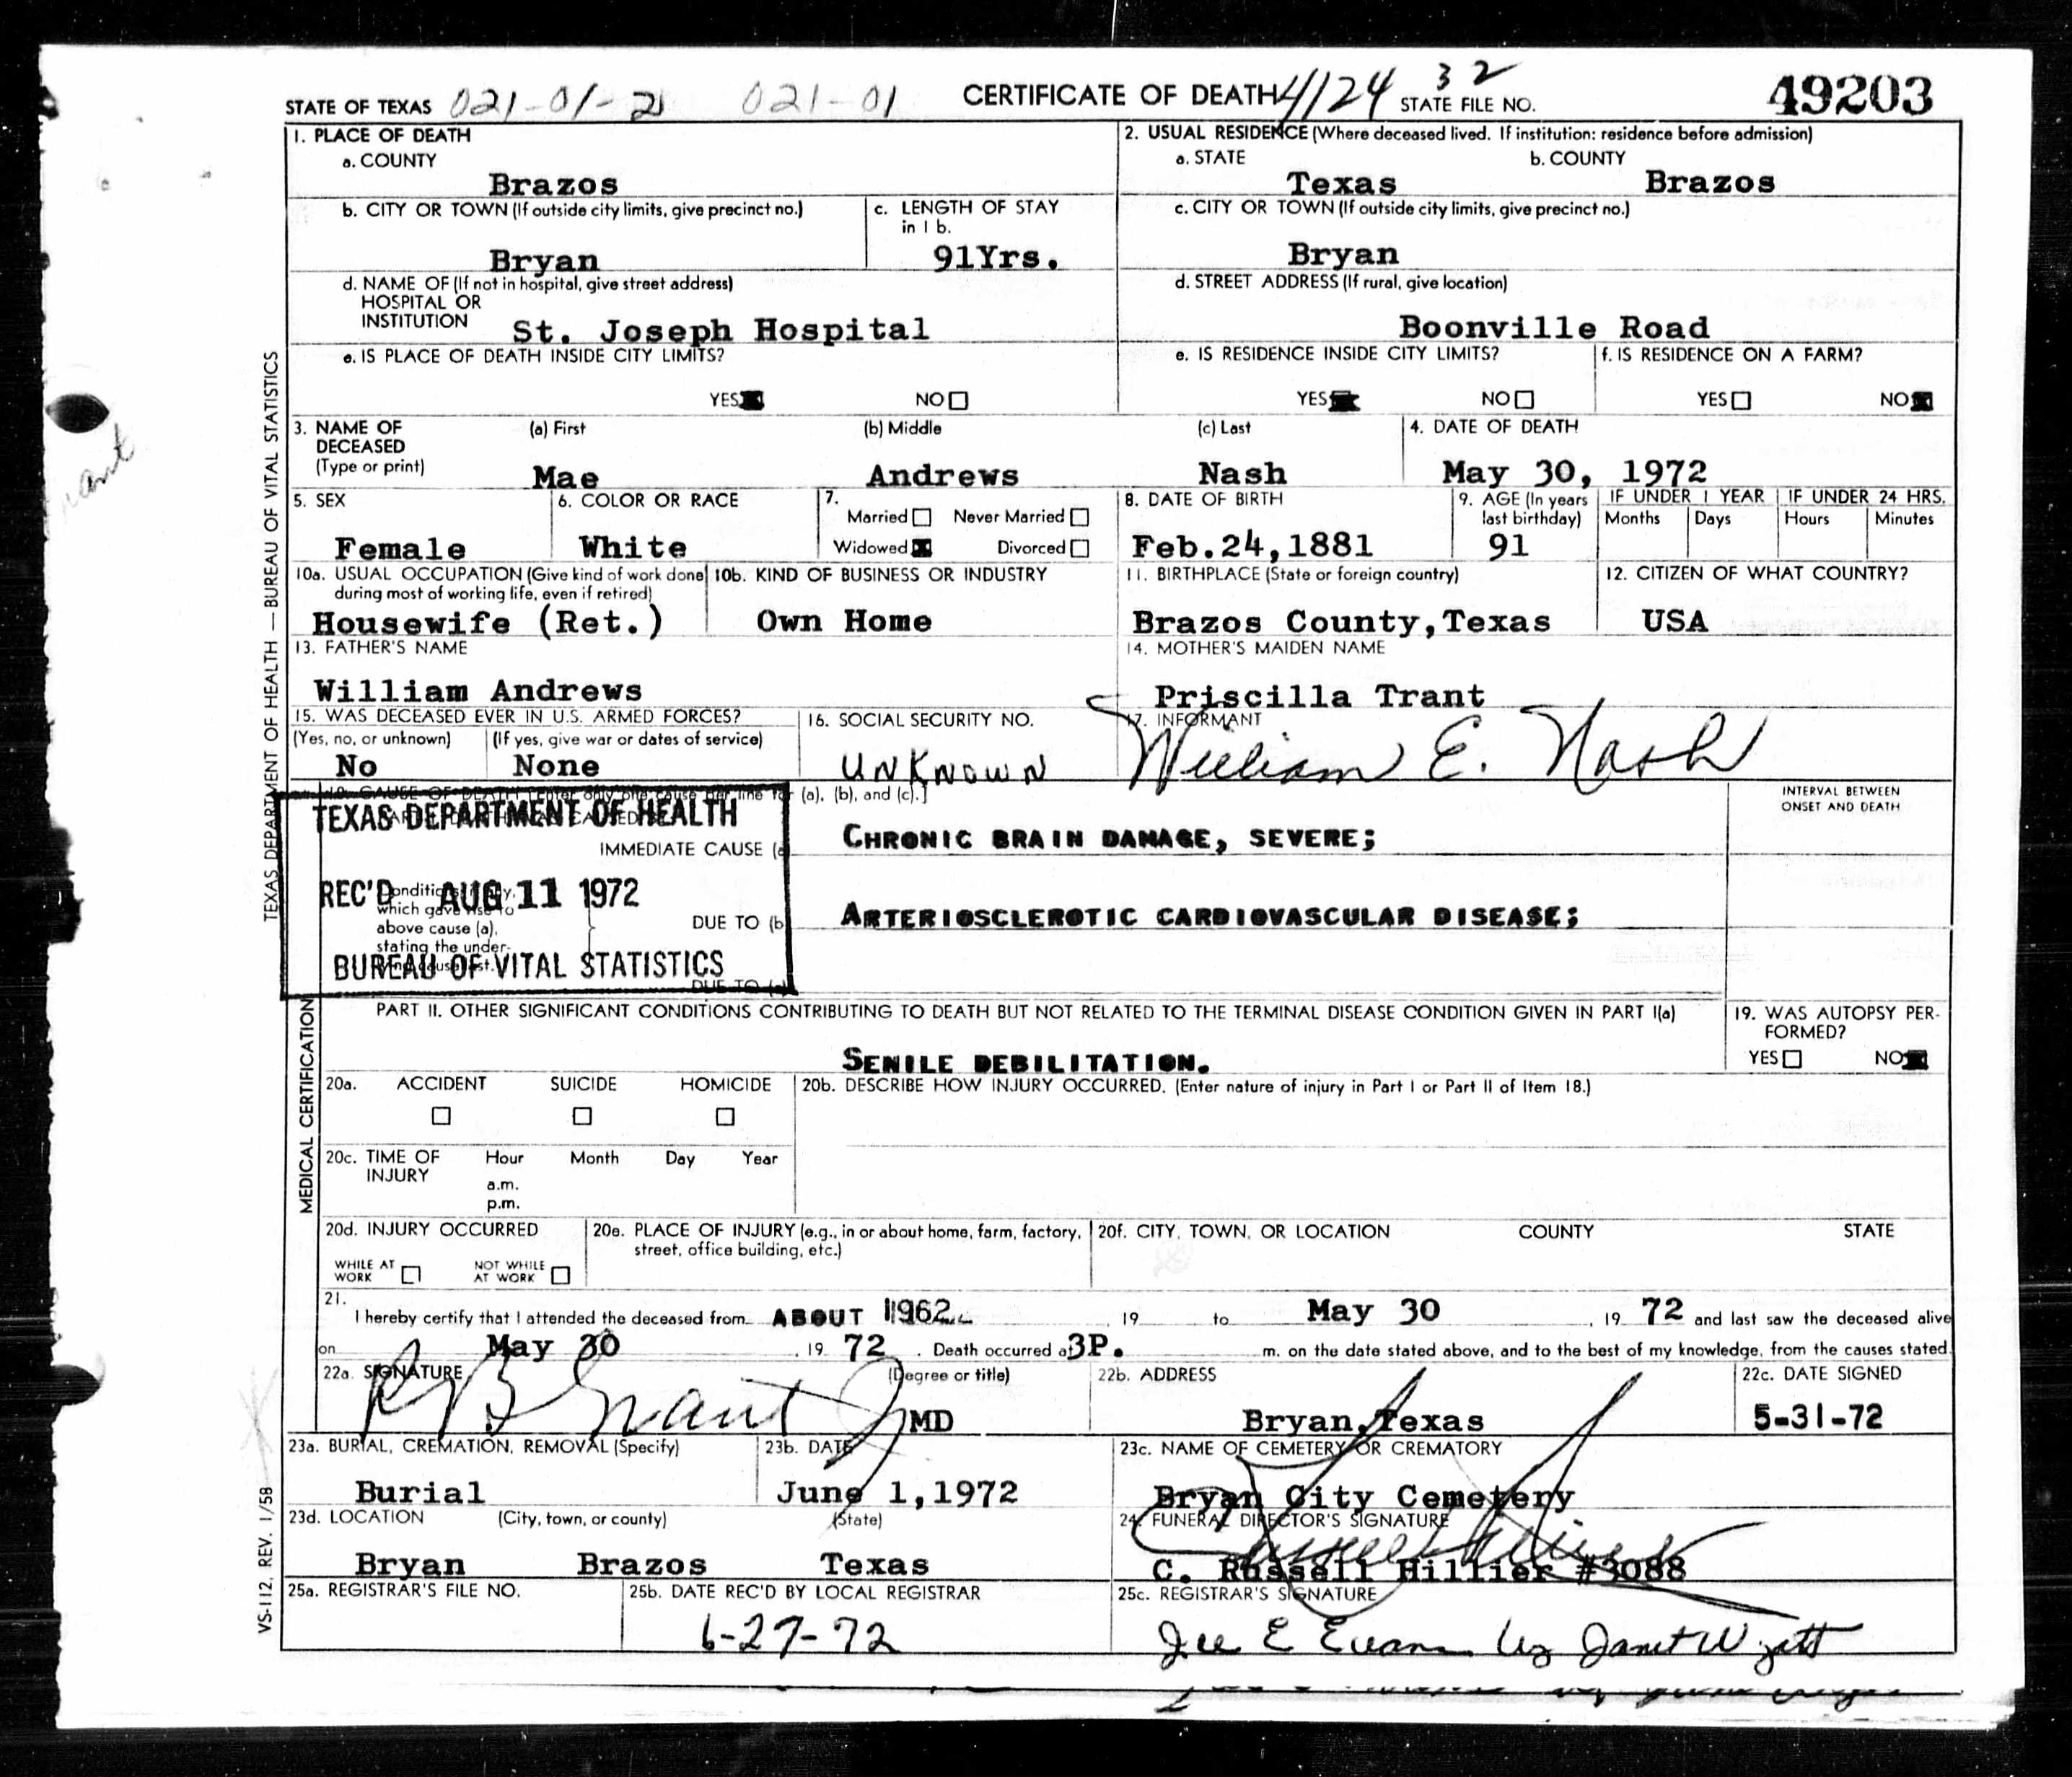 STATE OF TEXAS 021-01-2 021-01 CERTIFICATE OF DEATH 4124 32 STATE FILE NO. 49203
1. PLACE OF DEATH
a. COUNTY
Brazos
2. USUAL RESIDENCE (Where deceased lived. If institution: residence before admission)
a. STATE b. COUNTY
Texas Brazos
b. CITY OR TOWN (If outside city limits, give precinct no.)
Bryan
c. LENGTH OF STAY
in 1 b.
91Yrs.
c. CITY OR TOWN (If outside city limits, give precinct no.)
Bryan
d. NAME OF (If not in hospital, give street address)
HOSPITAL OR
INSTITUTION St. Joseph Hospital
d. STREET ADDRESS (If rural, give location)
Boonville Road
e. IS PLACE OF DEATH INSIDE CITY LIMITS?
YES NO
e. IS RESIDENCE INSIDE CITY LIMITS?
YES NO
f. IS RESIDENCE ON A FARM?
YES NO
3. NAME OF
DECEASED
(Type or print)
(a) First (b) Middle (c) Last
Mae Andrews Nash
4. DATE OF DEATH
May 30, 1972
5. SEX
Female
6. COLOR OR RACE
White
7.
Married Never Married
Widowed Divorced
8. DATE OF BIRTH
Feb.24,1881
9. AGE (In years
last birthday)
91
IF UNDER 1 YEAR IF UNDER 24 HRS.
Months Days Hours Minutes
10a. USUAL OCCUPATION (Give kind of work done
during most of working life, even if retired)
Housewife (Ret.)
10b. KIND OF BUSINESS OR INDUSTRY
Own Home
11. BIRTHPLACE (State or foreign country)
Brazos County,Texas
12. CITIZEN OF WHAT COUNTRY?
USA
13. FATHER'S NAME
William Andrews
14. MOTHER'S MAIDEN NAME
Priscilla Trant
15. WAS DECEASED EVER IN U.S. ARMED FORCES?
(Yes, no, or unknown) (If yes, give war or dates of service)
No None
16. SOCIAL SECURITY NO.
UNKNOWN
17. INFORMANT
William E. Nash
18. CAUSE OF DEATH [Enter only one cause per line for (a), (b), and (c).]
INTERVAL BETWEEN
ONSET AND DEATH
TEXAS DEPARTMENT OF HEALTH
REC'D AUG 11 1972
BUREAU OF VITAL STATISTICS
IMMEDIATE CAUSE (a
CHRONIC BRAIN DAMAGE, SEVERE;
Conditions if any,
which gave rise to
above cause (a),
stating the under-
DUE TO (b
ARTERIOSCLEROTIC CARDIOVASCULAR DISEASE;
DUE TO (c
PART II. OTHER SIGNIFICANT CONDITIONS CONTRIBUTING TO DEATH BUT NOT RELATED TO THE TERMINAL DISEASE CONDITION GIVEN IN PART I(a)
SENILE DEBILITATION.
19. WAS AUTOPSY PER-
FORMED?
YES NO
20a. ACCIDENT SUICIDE HOMICIDE
20b. DESCRIBE HOW INJURY OCCURRED. (Enter nature of injury in Part I or Part II of Item 18.)
20c. TIME OF
INJURY
Hour Month Day Year
a.m.
p.m.
20d. INJURY OCCURRED
WHILE AT
WORK
NOT WHILE
AT WORK
20e. PLACE OF INJURY (e.g., in or about home, farm, factory,
street, office building, etc.)
20f. CITY, TOWN, OR LOCATION COUNTY STATE
21.
I hereby certify that I attended the deceased from ABOUT 1962 , 19 to May 30 , 19 72 and last saw the deceased alive
on May 30 , 19 72 . Death occurred at 3P. m. on the date stated above, and to the best of my knowledge, from the causes stated.
22a. SIGNATURE (Degree or title)
R B Grant Jr MD
22b. ADDRESS
Bryan,Texas
22c. DATE SIGNED
5-31-72
23a. BURIAL, CREMATION, REMOVAL (Specify)
Burial
23b. DATE
June 1,1972
23c. NAME OF CEMETERY OR CREMATORY
Bryan City Cemetery
23d. LOCATION (City, town, or county) (State)
Bryan Brazos Texas
24. FUNERAL DIRECTOR'S SIGNATURE
C. Russell Hillier #3088
25a. REGISTRAR'S FILE NO.
25b. DATE REC'D BY LOCAL REGISTRAR
6-27-72
25c. REGISTRAR'S SIGNATURE
Joe E Evans by Janet Wyatt
TEXAS DEPARTMENT OF HEALTH — BUREAU OF VITAL STATISTICS
MEDICAL CERTIFICATION
VS-112, REV. 1/58